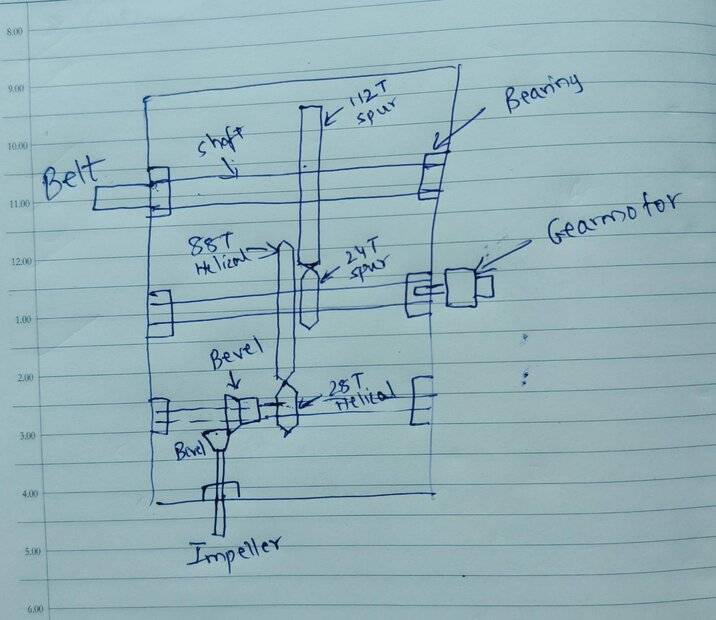 8.00
9.00
10.00
11.00
12.00
1.00
2.00
3.00
4.00
5.00
6.00
112T
spur
Bearing
shaft
Belt
88T
Helical
24T
spur
Gearmotor
Bevel
28T
Helical
Bevel
Impeller